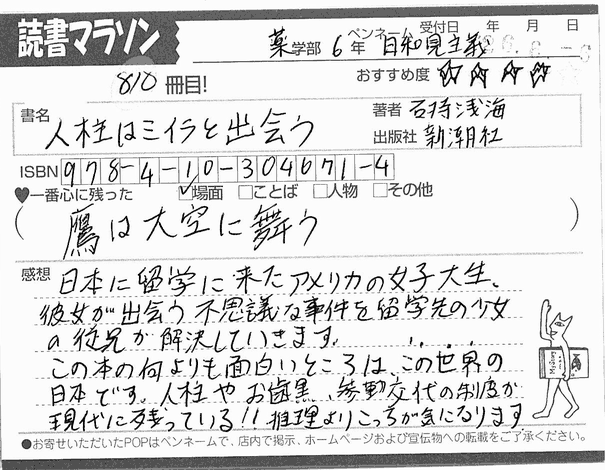 読書マラソン
薬学部 6年 ペンネーム 日和見主義 受付日 年 月 日
810 冊目! おすすめ度 ☆☆☆☆
書名 人柱はミイラと出会う 著者 石持浅海
出版社 新潮社
ISBN 978-4-10-304671-4
♥一番心に残った ☑場面 □ことば □人物 □その他
(鷹は大空に舞う)
感想 日本に留学に来たアメリカの女子大生、
彼女が出会う不思議な事件を留学先の少女
の従兄が解決していきます。
この本の何よりも面白いところは、この世界の
日本です。人柱やお歯黒、参勤交代の制度が
現代に残っている!!推理よりこっちが気になります
●お寄せいただいたPOPはペンネームで、店内で掲示、ホームページおよび宣伝物への転載をご了承ください。